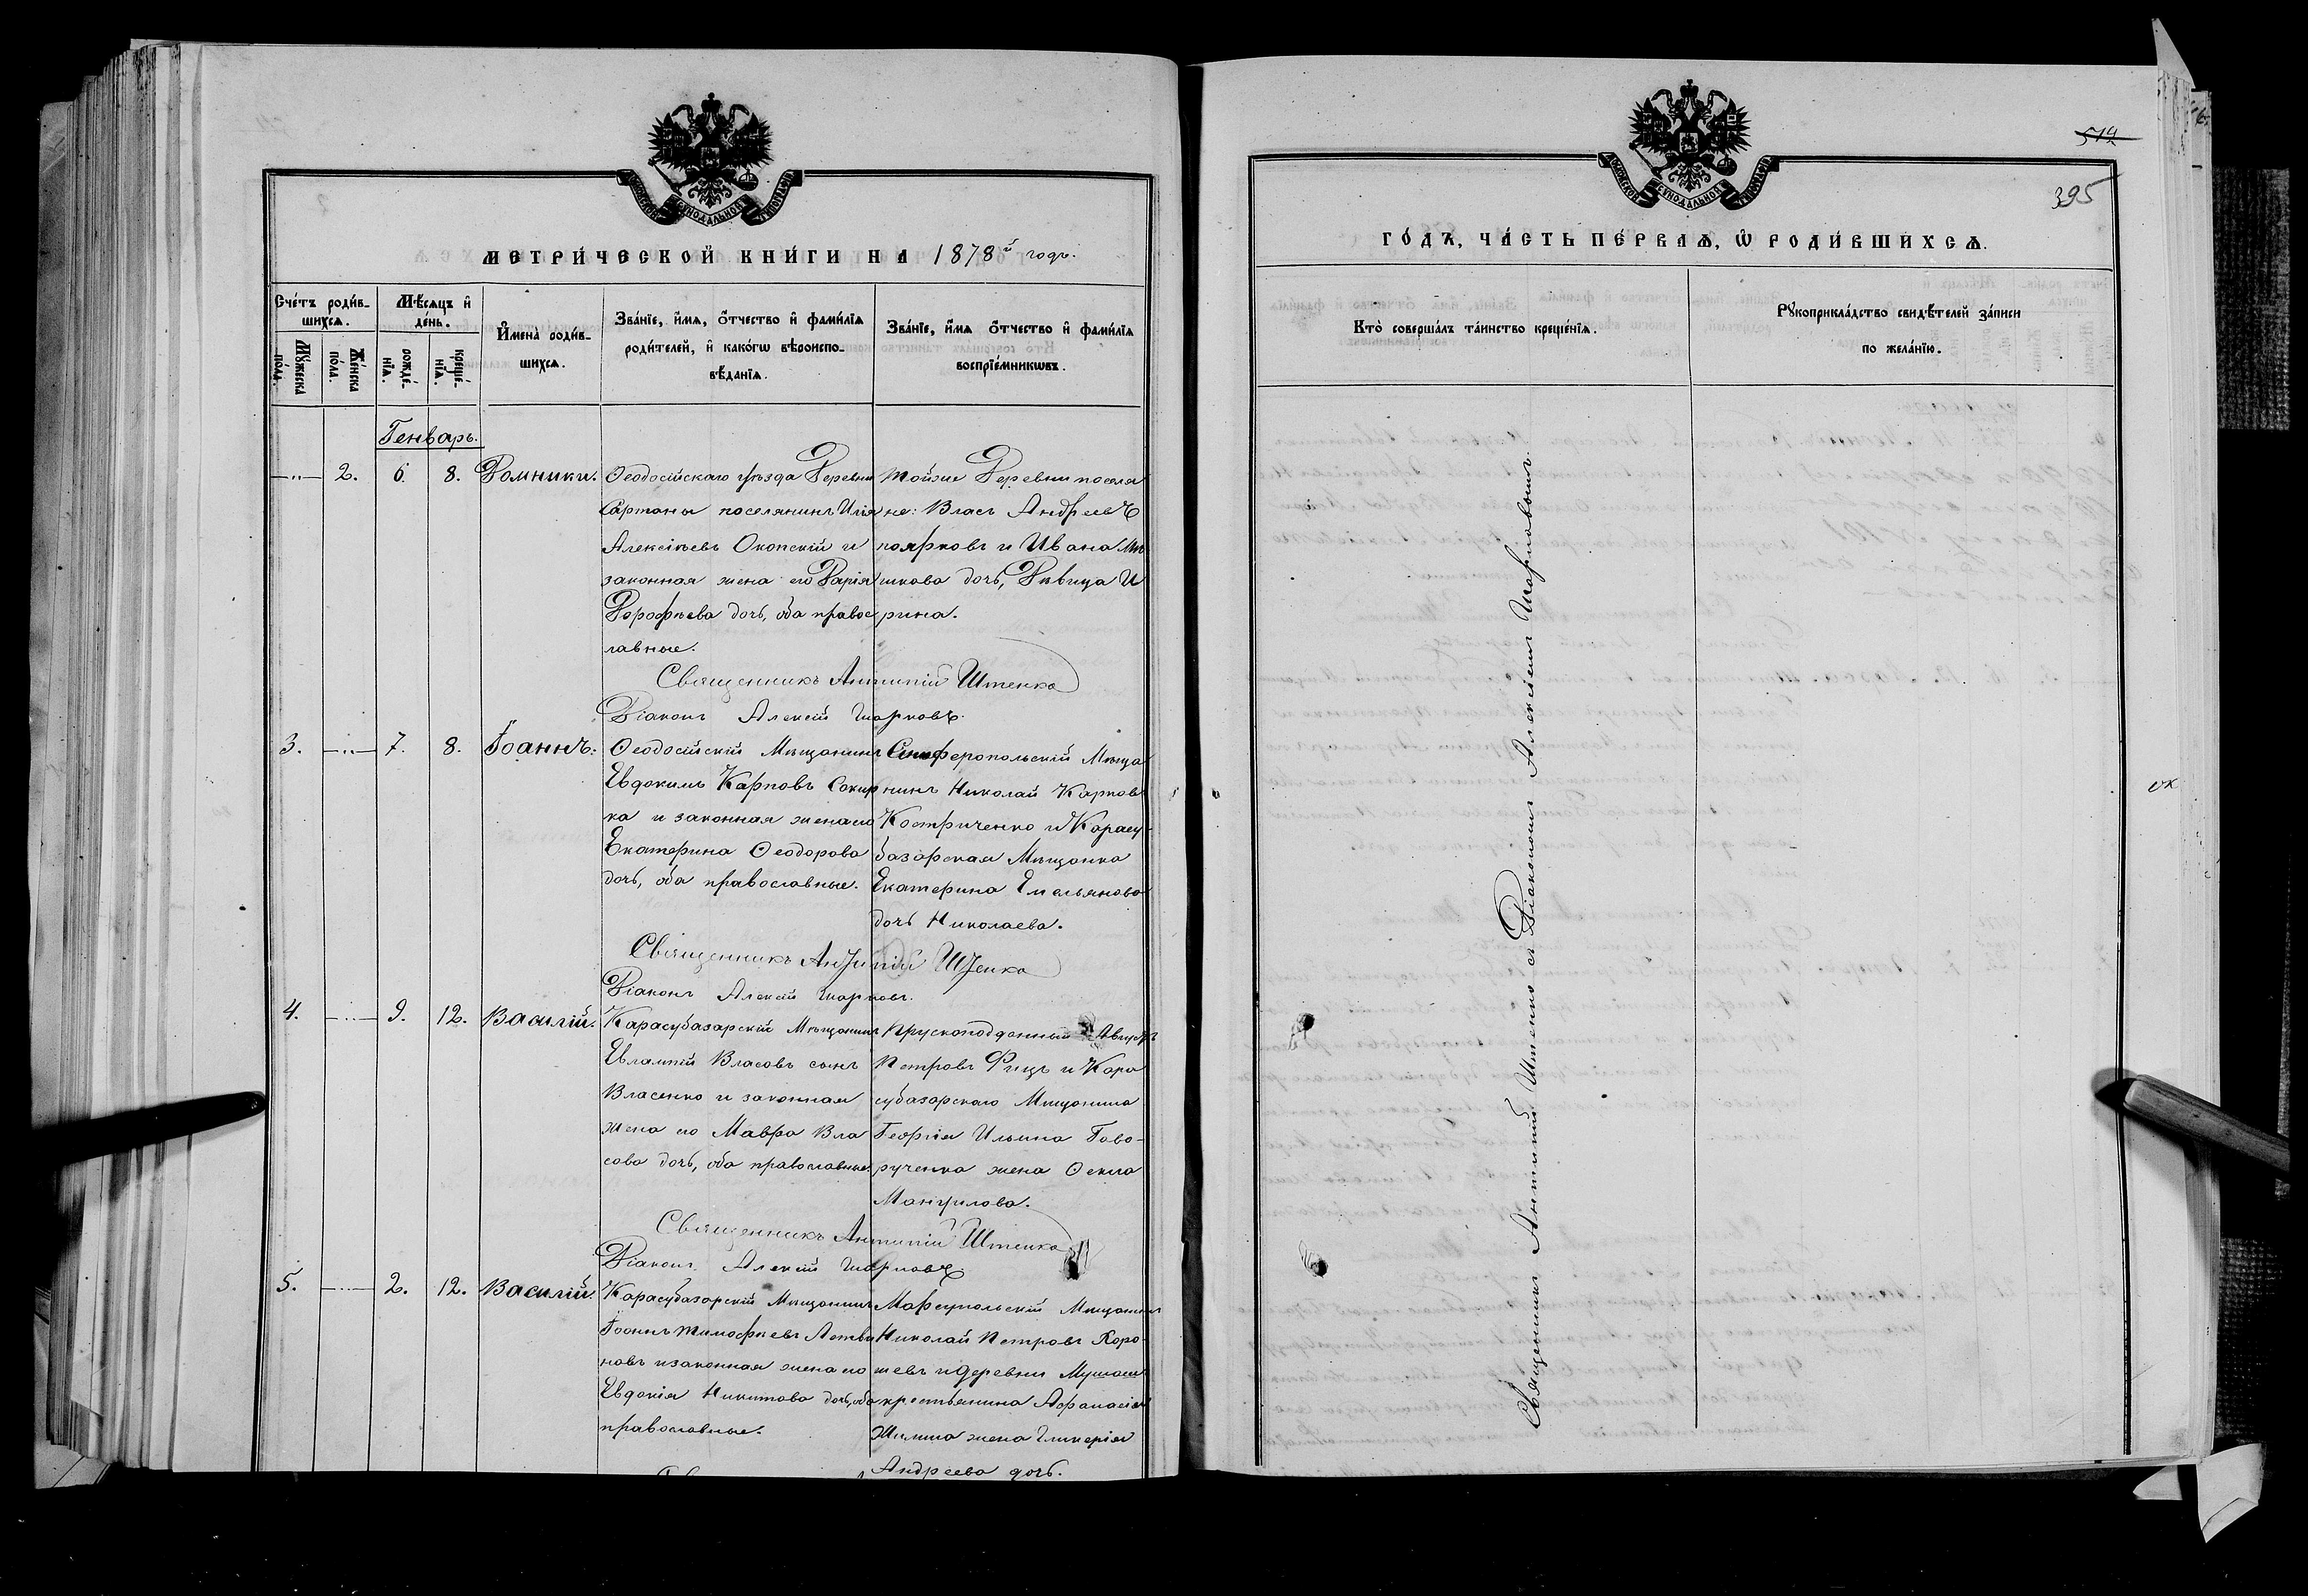 МЕТРИ́ЧЕСКОЙ КНИ́ГИ НА 1878й годъ.
Сче́тъ роди́в-
шихсѧ.
Мѣ́сѧцъ и҆
де́нь.
Мꙋ́жеска
по́ла.
Же́нска
по́ла.
рожде́-
нїѧ.
креще́-
нїѧ.
И҆мена̀ роди́в-
шихсѧ.
Зва́нїе, и҆́мѧ, ѻ҆́тчество и҆ фами́лїѧ
роди́телей, и҆ како́гѡ вѣроиспо-
вѣ́данїѧ.
Зва́нїе, и҆́мѧ ѻ҆́тчество и҆ фами́лїѧ
воспрїе́мникѡвъ.
Генварь.
2. 6. 8. Домники.
Ѳеодосійскаго уѣзда Деревни
Сартаны поселянинъ Илія
Алексѣевъ Окопскій и
законная жена его Дарія
Дорофѣева дочь, оба правос
лавные.
Тойже Деревни поселя
не: Власъ Андреевъ
поярковъ и Ивана
шкова дочь, Дѣвица И
рина.
Священникъ Антипій Штенко
Діаконъ Алексій Шарковъ.
3. 7. 8. Іоаннъ.
Ѳеодосійскій Мѣщанинъ
Евдокимъ Карповъ Сокир
ка и законная жена его
Екатерина Ѳеодорова
дочь, оба православные.
Симферопольскій Мѣща
нинъ Николай Карповъ
Костриченко и Карасу-
базарская Мѣщанка
Екатерина Емельянова
дочь Николаева.
Священникъ Антипій Штенко
Діаконъ Алексій Шарковъ.
4. 9. 12. Василій.
Карасубазарскій Мѣщанинъ
Евлампій Власовъ сынъ
Власенко и законная
жена его Мавра Вла
сова дочь, оба православные
Прускоподданный Августъ
Петровъ Фицъ и Кара
субазарскаго Мѣщанина
Георгія Ильина Гово-
рученка жена Ѳекла
Мануилова.
Священникъ Антипій Штенко
Діаконъ Алексій Шарковъ.
5. 2. 12. Василій.
Карасубазарскій Мѣщанинъ
Іоаннъ Тимофѣевъ Литви
новъ и законная жена его
Евдокія Никитова дочь, оба
православные.
Маріупольскій Мѣщанинъ
Николай Петровъ Коро-
шевъ и деревни Мушаш
крестьянина Афанасія
Жилина жена Гликерія
Андреева дочь.
514
395
ГО́ДЪ, ЧА́СТЬ ПЕ́РВАѦ, Ѡ҆ РОДИ́ВШИХСѦ.
Кто̀ соверша́лъ та́инство креще́нїѧ.
Рꙋкоприкла́дство свидѣ́телей за́писи
по жела́нїю.
Священникъ Антипій Штенко съ Діакономъ Алексіемъ Шарковымъ.
ок